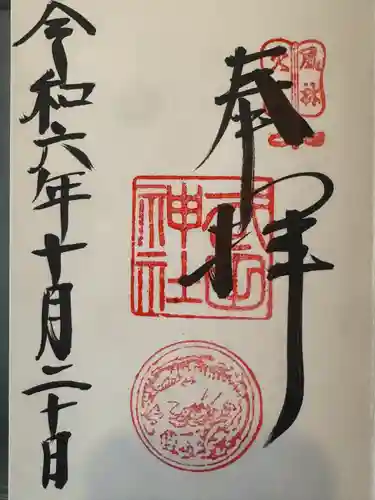 奉拝
風林
火
武田
神社
令和六年十月二十日